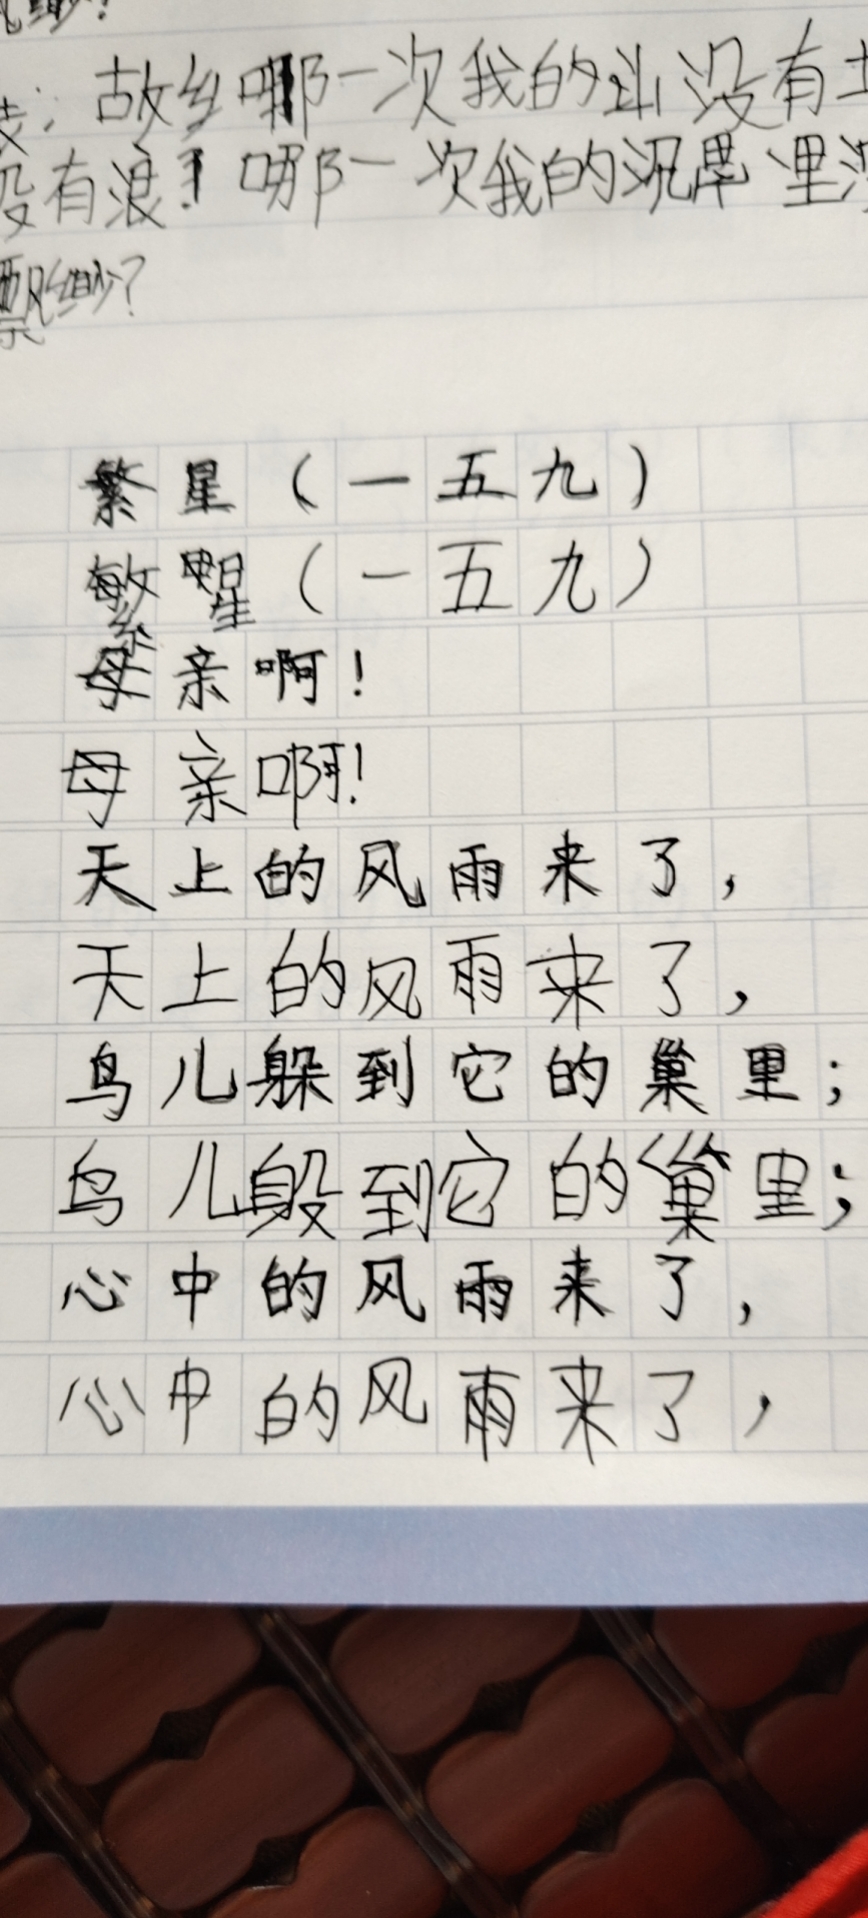 缈!
故乡哪一次我的 没有
没有浪!哪一次我的 里没
飘缈?
繁星(一五九)
繁星(一五九)
母亲啊!
母亲啊!
天上的风雨来了,
天上的风雨来了,
鸟儿躲到它的巢里;
鸟儿 到它的巢里;
心中的风雨来了,
心中的风雨来了,